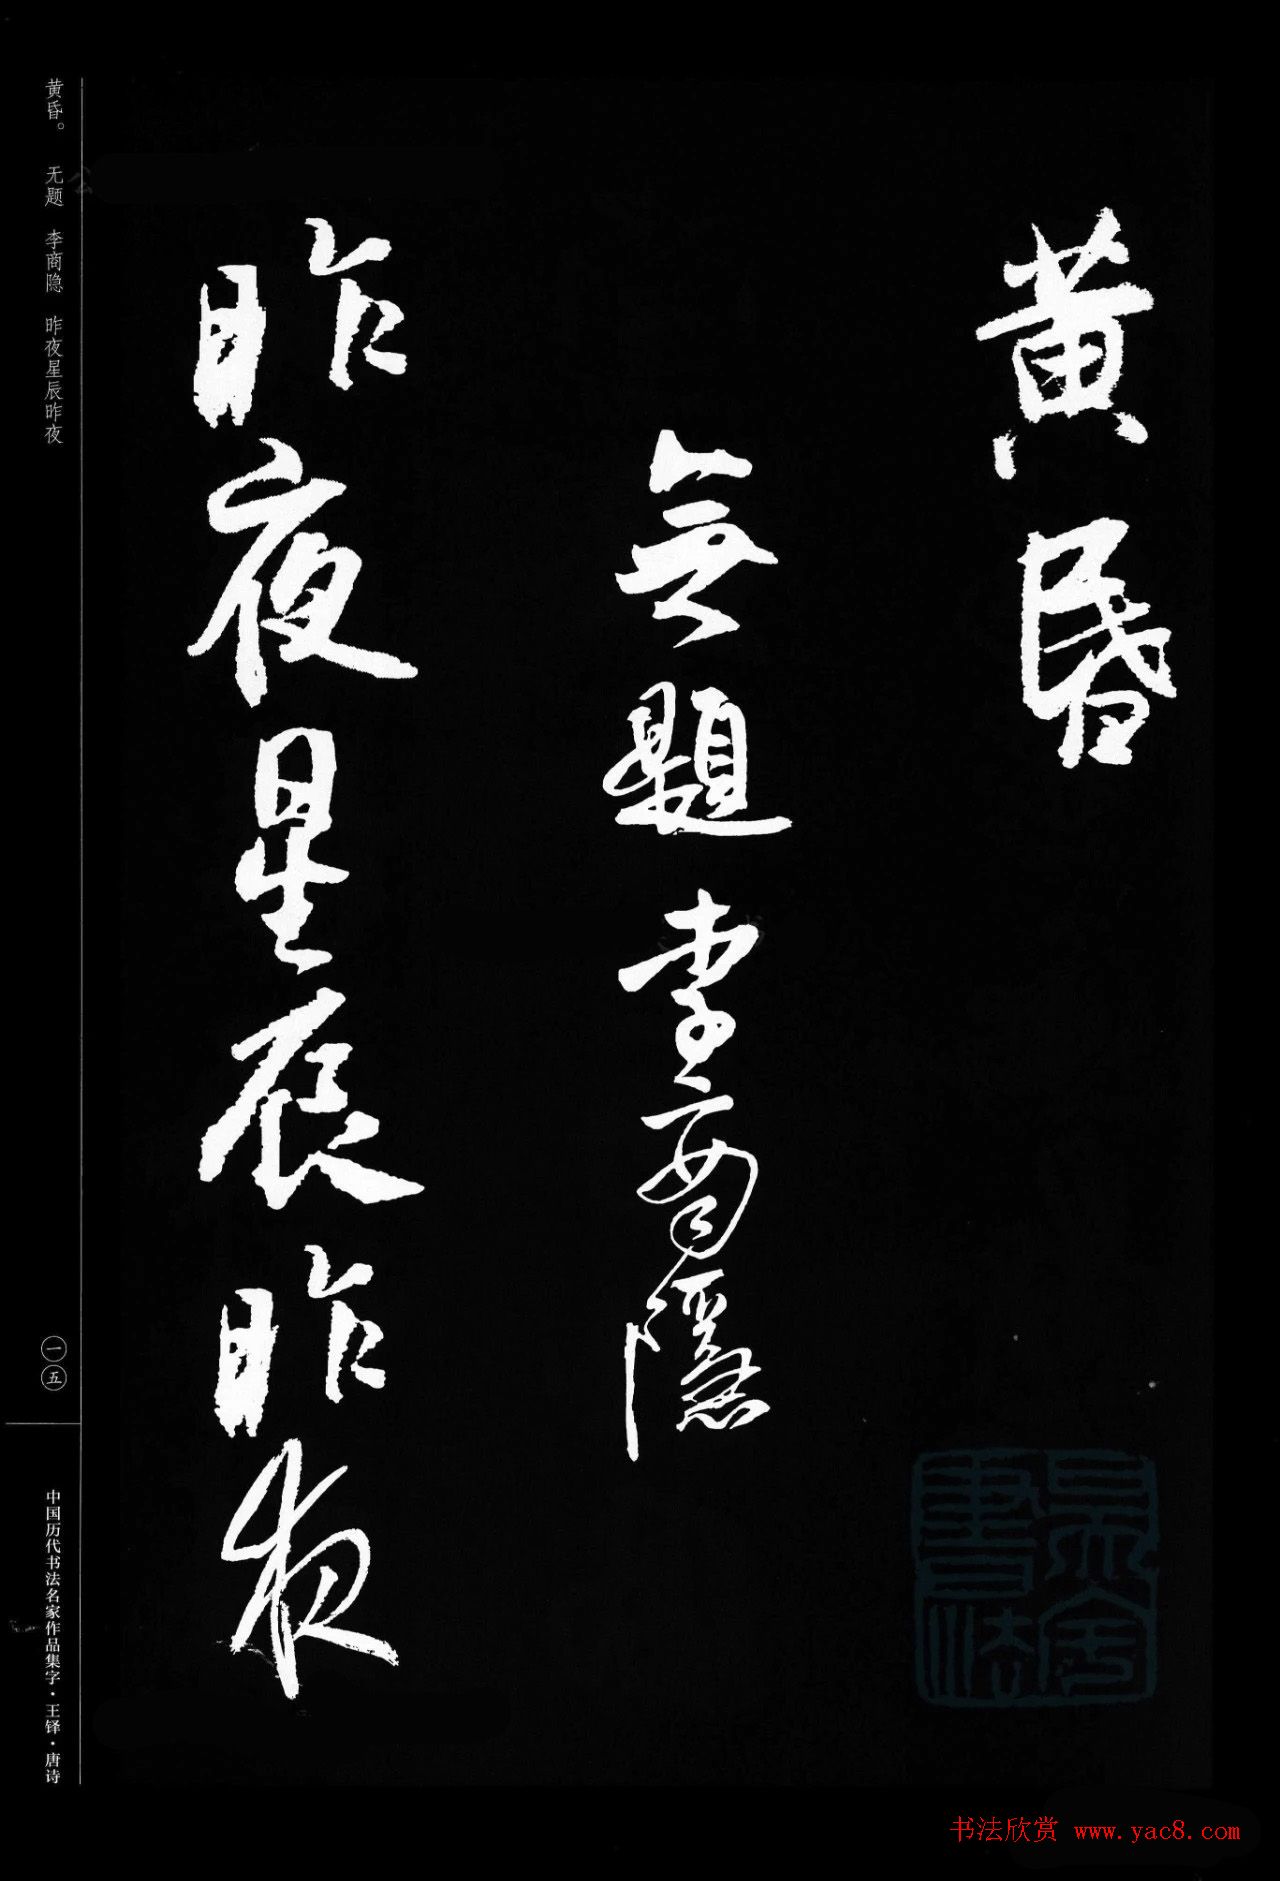 黄昏
無題 李商隱
昨夜星辰昨夜
黄昏。 无题 李商隐 昨夜星辰昨夜
一五
中国历代书法名家作品集字·王铎·唐诗
书法欣赏 www.yac8.com